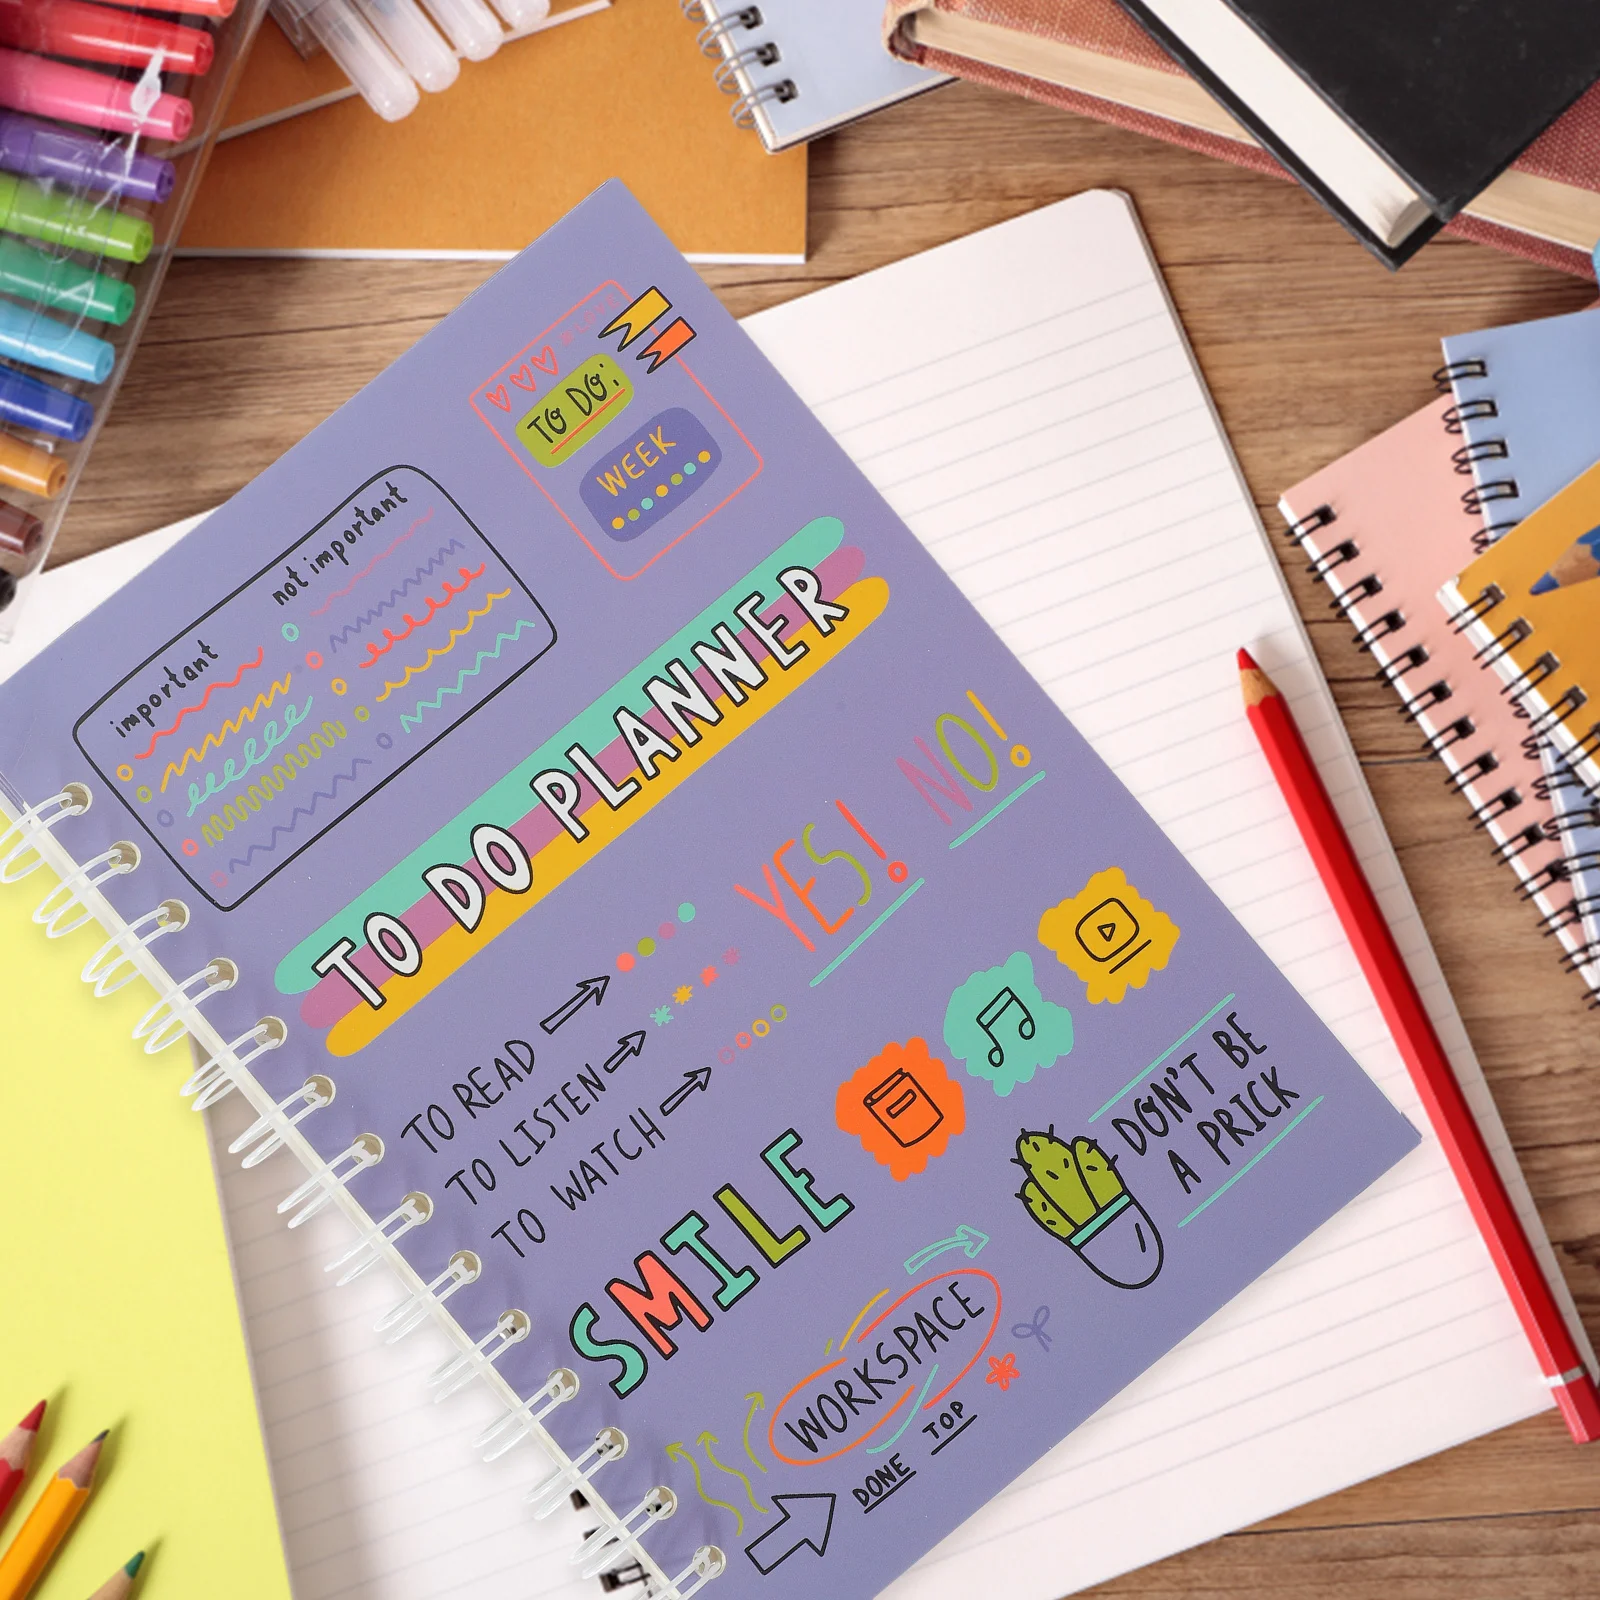 LOVE
TO DO:
WEEK
important
not important
TO DO PLANNER
NO!
YES!
TO READ
TO LISTEN
TO WATCH
SMILE
DON'T BE
A PRICK
WORKSPACE
DONE
TOP